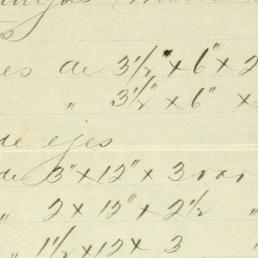 es de 3 1/2" x 6" x 2
" 3 1/2" x 6" x
de ejes
de 3" x 12" x 3 var
" 2 x 12" x 2 1/2 "
" 1 1/2 x 12 x 3 "